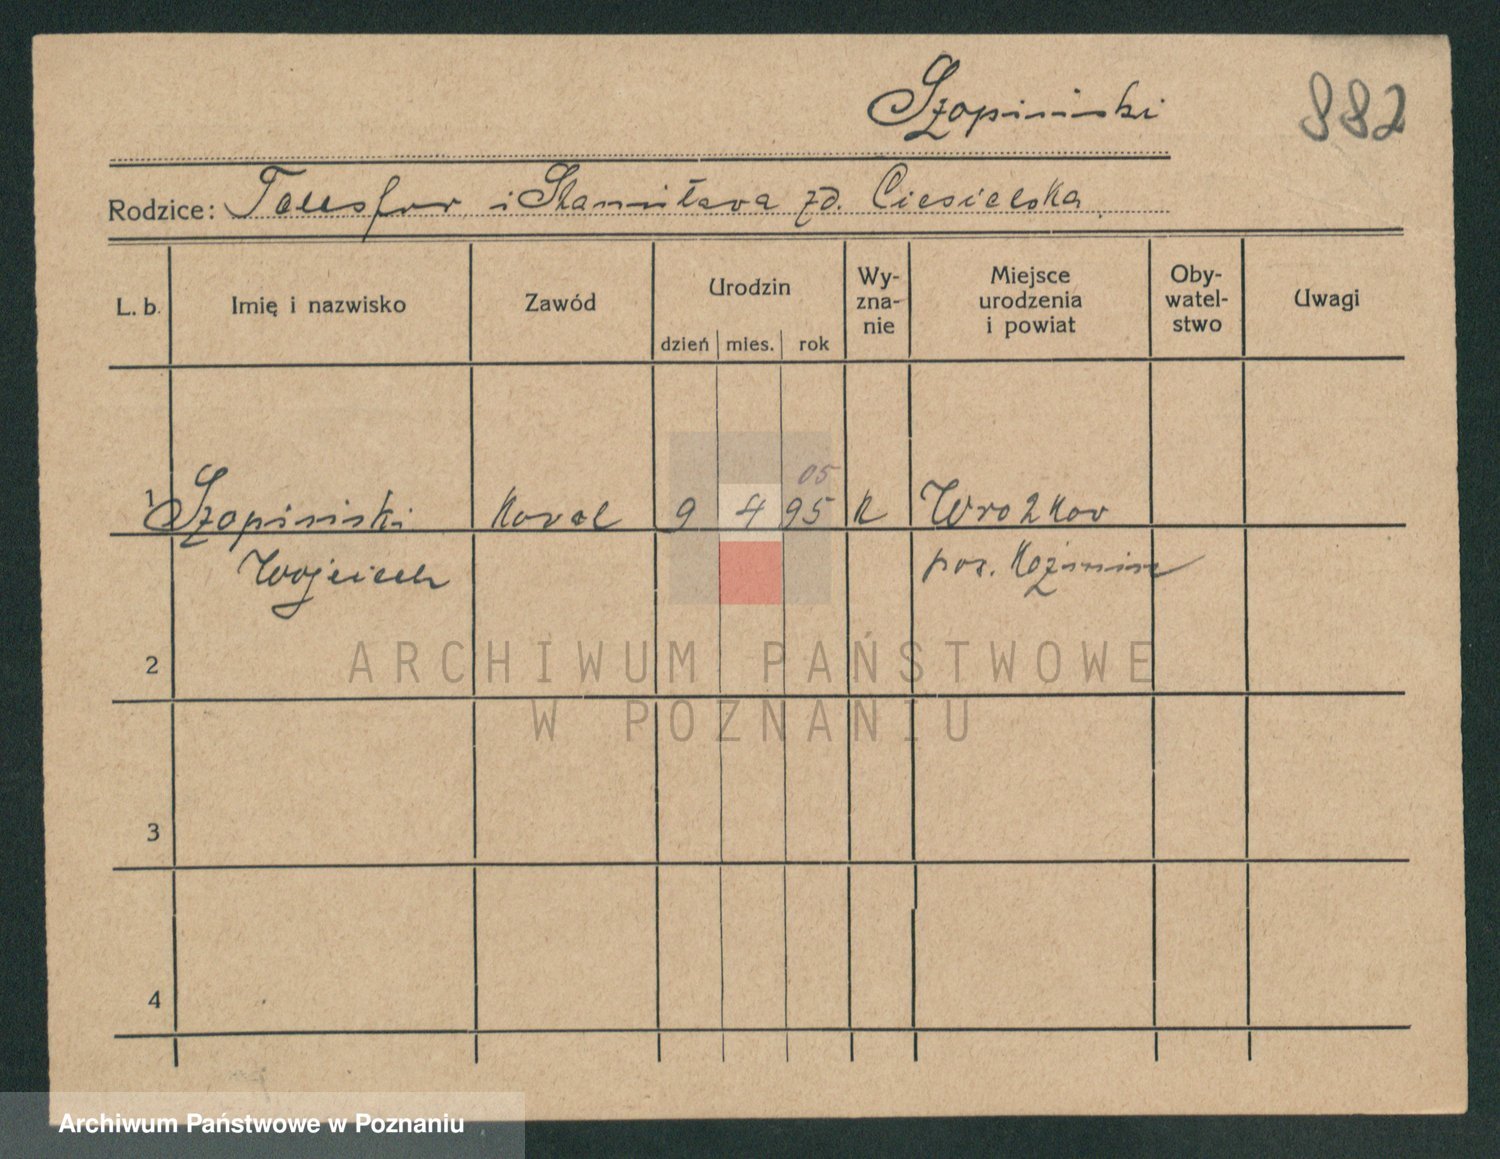 Szopiński
882
Rodzice: Telesfor i Stanisława zd. Ciesielska
L. b. Imię i nazwisko Zawód Urodzin dzień mies. rok Wy-zna-nie Miejsce urodzenia i powiat Oby-watel-stwo Uwagi
05
1 Szopiński Koval 9 4 95 K Wrotkow
Wojciech pow. Koźmin
2
3
4
ARCHIWUM PAŃSTWOWE
W POZNANIU
Archiwum Państwowe w Poznaniu